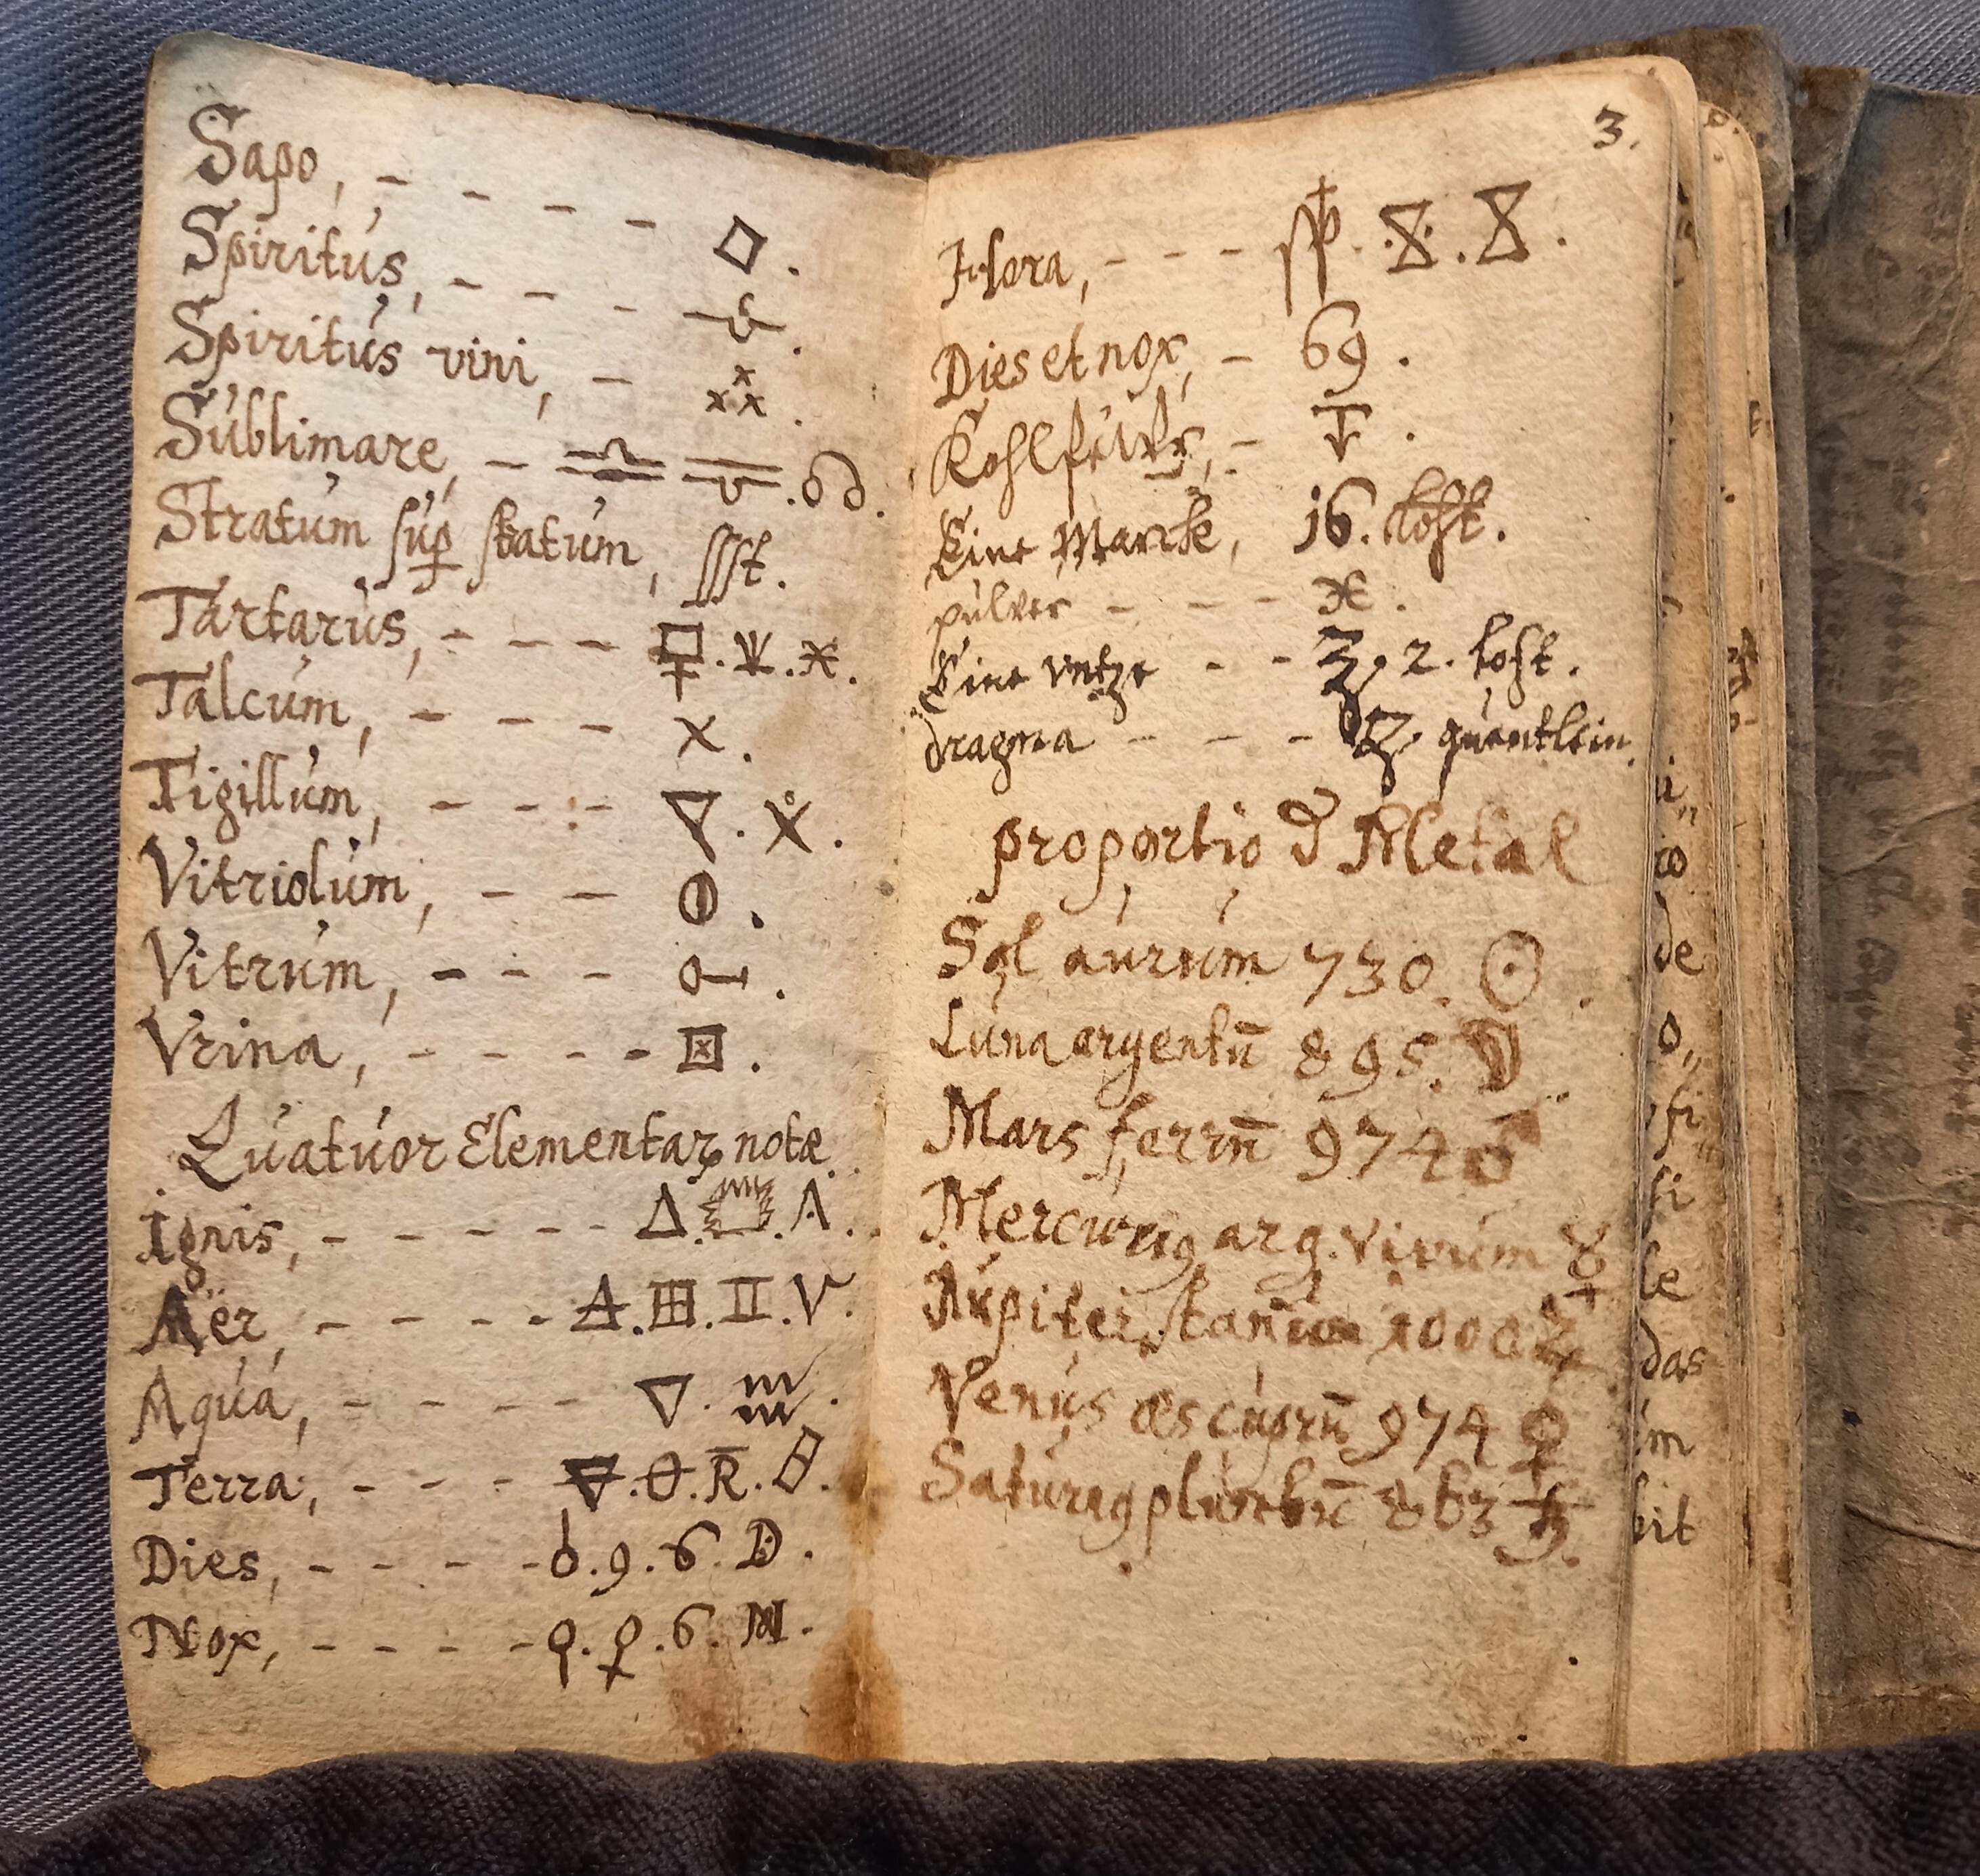 Sapo, - - - -
Spiritus, - - -
Spiritus vini, -
Sublimare, -
Stratum sup statum, ssst.
Tartarus, - - -
Talcum, - - -
Tigillum, - - -
Vitriolum, - -
Vitrum, - - -
Vrina, - - - -
Quatuor Elementar notæ.
Ignis, - - - - - △ . A.
Aër, - - - - III. II. V.
Aqua, - - - - ▽.
Terra, - - - R.
Dies, - - - - 9. 6. D.
Nox, - - - - 6. N.
3.
Hora, - - -
Dies et nox, - 69.
Eine Marck, 16. loht.
pulver - - -
Eine vntze - - ʒ. 2. loht.
dragma - - - ʒ. quentlein.
proportio d Metal
Sol aurum 730. ☉.
Luna argentū 895. ☽
Mars ferrū 974 ♂
Mercurius arg. vivum ☿
Jupiter, stannum 1000 ♃
Venus æs cuprū 974 ♀
Saturnus plumbū 863 ♄.
de
das